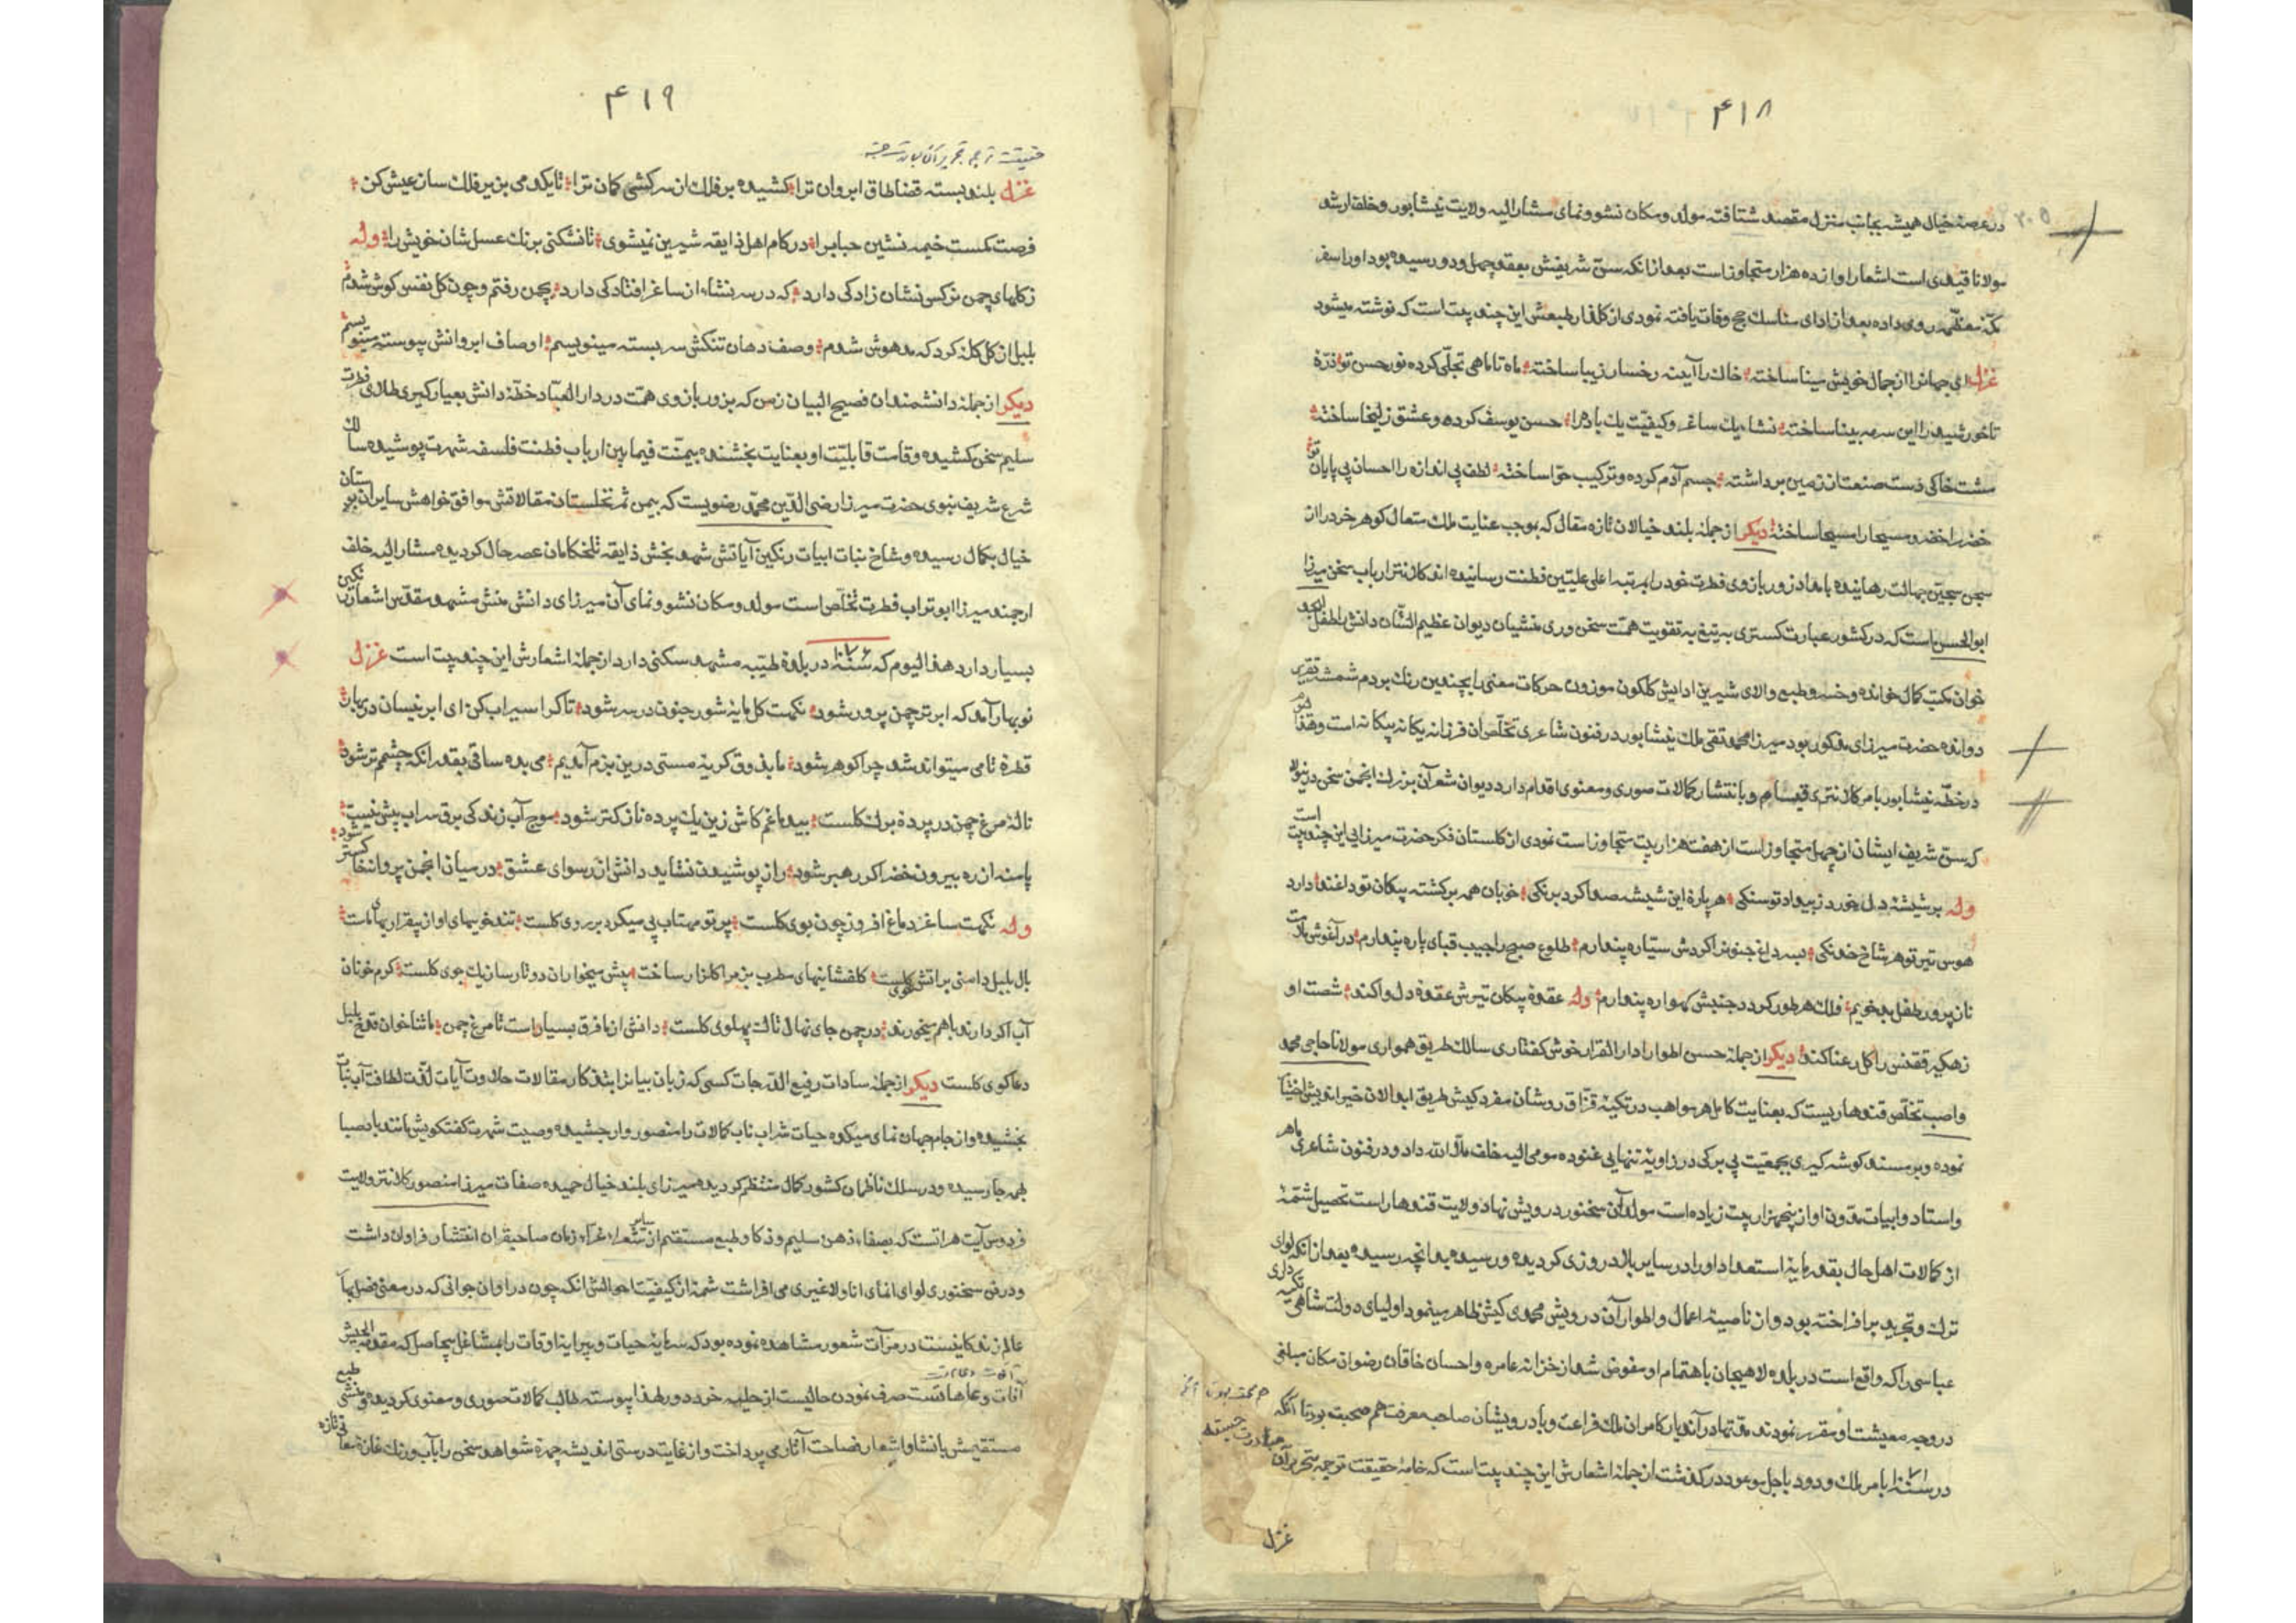 ۴۱۸
در عرصهٔ خیال همیشه بجانب منزل مقصد شتافته مولد و مکان نشو و نمای مشار الیه ولایت نیشابور و خلف ارشد
مولانا قیدی است اشعار او از ده هزار متجاوز است بعد از انکه سن شریفش بعقد چهل و دو رسیده بود او را سفر
مکهٔ معظمه روی داده بعد از ادای مناسک حج وفات یافته نمودی از کلفار طبعش این چند بیت است که نوشته میشود
غزل ای جهانرا از جمال خویش مینا ساخته خاک را آیینه رخسار زیبا ساخته ماه تا ماهی تجلی کرده نور حسن تو ذره
تا خورشید را این سرمه بینا ساخته نشاء یک ساغر و کیفیت یک باده را حسن یوسف کرده و عشق زلیخا ساخته
مشت خاکی دست صنعت از زمین برداشته جسم آدم کرده و ترکیب حوا ساخته لطف بی اندازه را احسان بی پایان تو
خضر را خضر و مسیحا را مسیحا ساخته دیگر از جمله بلند خیالان تازه مقال که بموجب عنایت ملک متعال گوهر خرد را از
سجن سجین جهالت رهانیده بامداد زور بازوی فطرت خود را بمرتبه اعلی علیین فطنت رسانیده اند کلانتر ارباب سخن میرزا
ابوالحسن است که در کشور عبارت گستری به تیغ به تقویت همت سخن وری منشیان دیوان عظیم الشان دانش را طفل ابجد
خوان مکتب کمال خوانده و خسرو طبع والای شیرین ادایش گلگون موزون حرکات معنی را بچندین رنگ بر دم شمشیر تقریر
دوانده حضرت میرزای مذکور بود میرزا محمد تقی ملک نیشابور در فنون شاعری تخلص ان فرزانه یگانه پیکانه است و هم
در خطهٔ نیشابور بامر کلانتری قیام و بانتشار کمالات صوری و معنوی اقدام دارد دیوان شعر آن بزرگ انجمن سخن درینولا
که سن شریف ایشان از چهل متجاوز است از هفت هزار بیت متجاوز است نمودی از گلستان فکر حضرت میرزایی این چند بیت است
وله بر شیشهٔ دل خورد ز بیداد تو سنگی هر پارهٔ این شیشه صدا کرد برنگی خوبان همه برگشته پیکان تو داغند دارد
هوس تیر تو هر شاخ خدنگی بسر داغ جنونرا گردش ستاره پندارم طلوع صبح را جیب قبای پاره پندارم در آغوش
نان پرور طفل بدخویم فلک هر طور گردد جنبش گهواره پندارم وله عقدهٔ پیکان تیرش عقدهٔ دل وا کند شصت او
زهگیر ققنس را گل رعنا کند دیگر از جمله حسن اطوار دار القرار خوش گفتاری سالک طریق همواری مولانا حاجی محمد
واصب تخلص قندهاریست که بعنایت کامل هر مواهب در تکیهٔ قزاق روشان مفرد کیش طریق ابدالان خیر اندیش اختیار
نموده و بر مسند گوشه گیری بجمعیت بی برگی در زاویهٔ تنهایی غنوده مومی الیه خلف ملا الله داد و در فنون شاعری ماهر
و استاد و ابیات مدون او از پنجهزار بیت زیاده است مولد آن سخنور درویش نهاد ولایت قندهار است تحصیل شمهٔ
از کمالات اهل حال بقدر مایهٔ استعداد او را در سایر بلاد روزی گردیده و رسیده بدانچه رسیده بعد از انکه لوای
ترک و تجرید بر افراخته بود و از ناصیهٔ اعمال و اطوار آن درویش محمدی کیش ظاهر مینمود اولیای دولت شاهی تکیه داری
عباسی را که واقع است در بلدهٔ لاهیجان باهتمام او مفوض شد از خزانه عامره و احسان خاقان رضوان مکان مبلغی
در وجه معیشت او مقرر نمودند مدتها در آندیار کامران ملک فراغت و با درویشان صاحب معرفت هم صحبت بود تا آنکه
در سنهٔ بامر ملک ودود باجل موعود در گذشت از جملهٔ اشعارش این چند بیت است که خامهٔ حقیقت ترجمه بتحریر آن
غزل
۴۱۹
حقیقت ترجمه بتحریر آن
غزل بلند بسته قضا طاق ابروان ترا کشیده بر فلک از سرکشی کمان ترا تا یکدمی بزیر فلک سان عیش کن
فرصت کمست خیمه نشین حباب را در کام اهل ذایقه شیرین نمیشوی تا نشکنی برنگ عسل شان خویش را وله
ز گلهای چمن نرگس نشان زادگی دارد که در سر نشاء از ساغر افتادگی دارد بچمن رفتم و چون گل نفس گوش شدم
بلبل از گل گله کرد که مدهوش شدم وصف دهان تنگش سربسته مینویسم اوصاف ابروانش پیوسته مینویسم
دیگر از جملهٔ دانشمندان فصیح البیان زمن که بزور بازوی همت در دار العباد خطهٔ دانش بعیار گیری طلای فطرت
سلیم سخن کشیده و قامت قابلیت او بعنایت بخشنده بیمنت فیما بین ارباب فطنت فلسفه شهرت پوشیده سالک
شرع شریف نبوی حضرت میرزا رضی الدین محمد رضویست که بیمن ثمر نخلستان مقالاتش موافق خواهش سایران بوستان
خیال بکمال رسیده و شاخ نبات ابیات رنگین آیاتش شهد بخش ذایقه تلخکامان عصر حال گردیده مشار الیه خلف
ارجمند میرزا ابوتراب فطرت تخلص است مولد و مکان نشو و نمای آن میرزای دانش منش مشهد مقدس اشعار رنگین
بسیار دارد هذا الیوم که سنهٔ ۱۰۷۶ در بلدهٔ طیبه مشهد سکنی دارد از جملهٔ اشعارش این چند بیت است غزل
نوبهار آمد که ابر تر چمن پرور شود نکهت گل مایهٔ شور جنون در سر شود تاک را سیراب کن ای ابر نیسان در بهار
قطرهٔ تا می میتواند شد چرا گوهر شود ما بذوق گریهٔ مستی درین بزم آمدیم می بده ساقی بقدر انکه چشم تر شود
نالهٔ مرغ چمن در پردهٔ برگ گلست بیدماغم کاش زین یک پرده نازکتر شود موج آب زندگی برق سراب بیش نیست
پا منه از ره بیرون خضر اگر رهبر شود راز پوشیدن نشاید دانش از رسوای عشق در میان انجمن پروانه خاکستر شود
وله نکهت ساغر دماغ افروز چون بوی گلست پرتو مهتاب پی میکرد بر روی گلست تندخویهای او از بیقراریهای ماست
بال بلبل دامنی بر آتش خوی گلست گلفشانیهای مطرب بزم را گلزار ساخت پیش میخواران دو تار ساز یک جوی گلست گرم خونان
آب اگر دارند باهم میخورند در چمن جای نهال تاک پهلوی گلست دانش از ما فرق بسیار است تا مرغ چمن ما ثناخوان قدح بلبل
دعاگوی گلست دیگر از جملهٔ سادات رفیع الدرجات کسی که زبان بیانرا بتذکار مقالات حلاوت آیات لذت لطافت آب نبات
بخشیده و از جام جهان نمای میکدهٔ حیات شراب ناب کمالات را منصوروار چشیده و صیت شهرت گفتگویش مانند باد صبا
بهمه جا رسیده و در سلک ناظمان کشور کمال منتظم گردیده میرزای بلند خیال حمیده صفات میرزا منصور کلانتر ولایت
فردوس آیت هراتست که بصفاء ذهن سلیم و ذکا و طبع مستقیم از سایر شعراء غراء زمان صاحبقران انتشار فراوان داشت
و در فن سخنوری لوای انمای انا ولا غیری می افراشت شمهٔ از کیفیت احوالش انکه چون در اوان جوانی که در معنی فصل بهار
عالم زندگانیست در مرآت شعور مشاهده نموده بود که سرمایهٔ حیات و پیرایهٔ اوقات را بمشاغل بیحاصل که مقدمهٔ الجیش
آفات و عاهاتست صرف نمودن حالیست از حلیهٔ خرد دور لهذا پیوسته طالب کمالات صوری و معنوی گردیده و منشی طبع
مستقیمش بانشاء اشعار فصاحت آثار می پرداخت و از غایت درستی اندیشه چهرهٔ شواهد سخن را بآب و رنگ